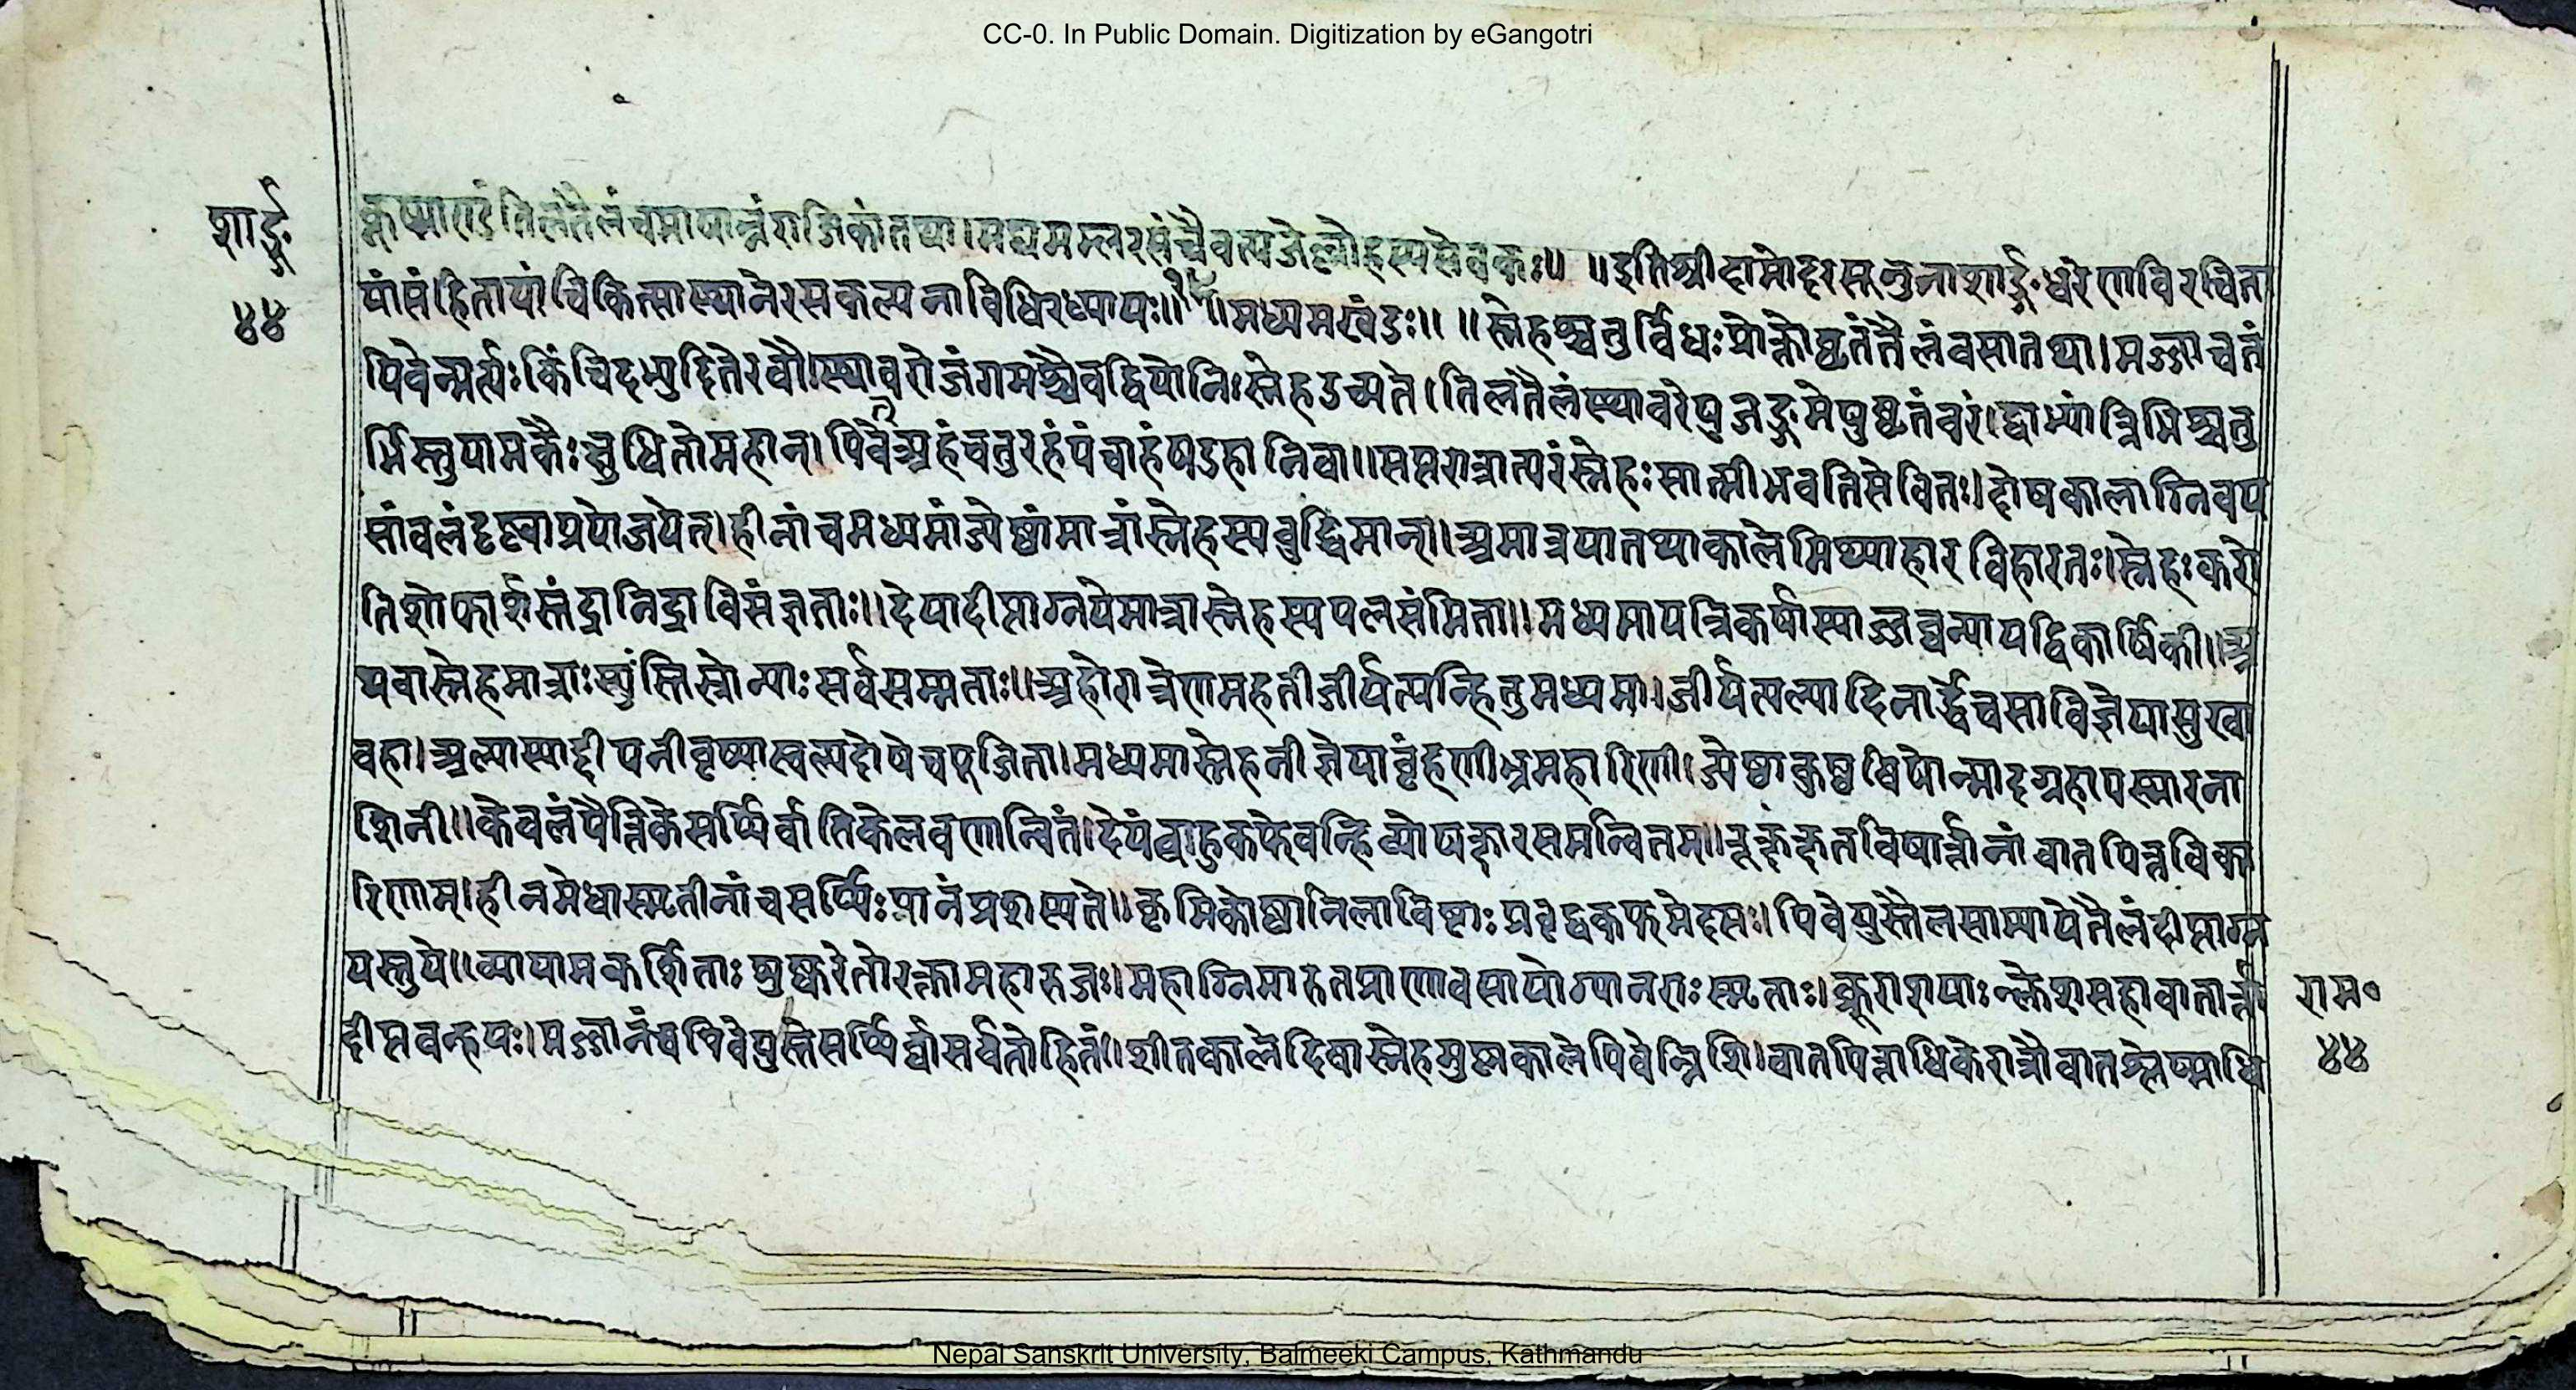 CC-0. In Public Domain. Digitization by eGangotri
शार्ङ्ग
४४
कूष्माण्डं तिलतैलं च माषान्नं राजिकां तथा। मद्यमम्लरसं चैव त्यजेल्लोहस्य सेवकः॥ ॥इति श्रीदामोदरसूनुना शार्ङ्गधरेण विरचिता
यां संहितायां चिकित्सास्थाने रसकल्पनाविधिरध्यायः॥ ॥मध्यमखंडः॥ ॥स्नेहश्चतुर्विधः प्रोक्तो घृतं तैलं वसा तथा। मज्जा च तं
पिबेन्मर्त्यः किंचिदभ्युदिते रवौ। स्थावरो जंगमश्चैव द्वियोनिः स्नेह उच्यते। तिलतैलं स्थावरेषु जङ्गमेषु घृतं वरं। द्वाभ्यां त्रिभिश्चतु
र्भिस्तु यामकैः क्षुधितो महान्। पिबेत्र्यहं चतुरहं पंचाहं षडहानि वा॥ सप्तरात्रात्परं स्नेहः सात्मीभवति सेवितः। दोषकालाग्निवय
सां बलं दृष्ट्वा प्रयोजयेत्। हीनां च मध्यमां ज्येष्ठां मात्रां स्नेहस्य बुद्धिमान्। अमात्रया तथाकाले मिथ्याहारविहारतः। स्नेहः करो
ति शोफार्शस्तंद्रानिद्राविसंज्ञताः॥ देया दीप्ताग्नये मात्रा स्नेहस्य पलसंमिता॥ मध्यमाय त्रिकर्षा स्याज्जघन्याय द्विकार्षिकी॥ अ
थवा स्नेहमात्राः स्युस्तिस्रोन्याः सर्वसम्मताः॥ अहोरात्रेण महती जीर्यत्यन्हि तु मध्यमा। जीर्यत्यल्पा दिनार्द्धेच सा विज्ञेया सुखा
वहा। अल्पा स्याद्दीपनी वृष्या स्वल्पदोषे च पूजिता। मध्यमा स्नेहनी ज्ञेया बृंहणी भ्रमहारिणी। ज्येष्ठा कुष्ठविषोन्मादग्रहापस्मारना
शिनी॥ केवलं पैत्तिके सर्पिर्वातिके लवणान्वितं। देयं बाहुकफे वन्हि व्योषक्षारसमन्वितम्॥ रूक्षक्षतविषार्त्तानां वातपित्तविका
रिणाम्। हीनमेधास्मृतीनां च सर्पिः पानं प्रशस्यते॥ कृमिकोष्ठानिलाविष्टाः प्रवृद्धकफमेदसः। पिबेयुस्तैलसात्म्या ये तैलं दीप्ताग्न
यस्तु ये॥ व्यायामकर्शिताः शुष्करेतोरक्ता महारुजः। महाग्निमारुतप्राणा वसायोग्या नराः स्मृताः। क्रूराशयाः क्लेशसहा वातार्त्ता
दीप्तवन्हयः। मज्जानं च पिबेयुस्ते सर्पिर्वा सर्वतो हितं॥ शीतकाले दिवा स्नेहमुष्णकाले पिबेन्निशि। वातपित्ताधिके रात्रौ वातश्लेष्माधि
राम०
४४
Nepal Sanskrit University, Balmeeki Campus, Kathmandu